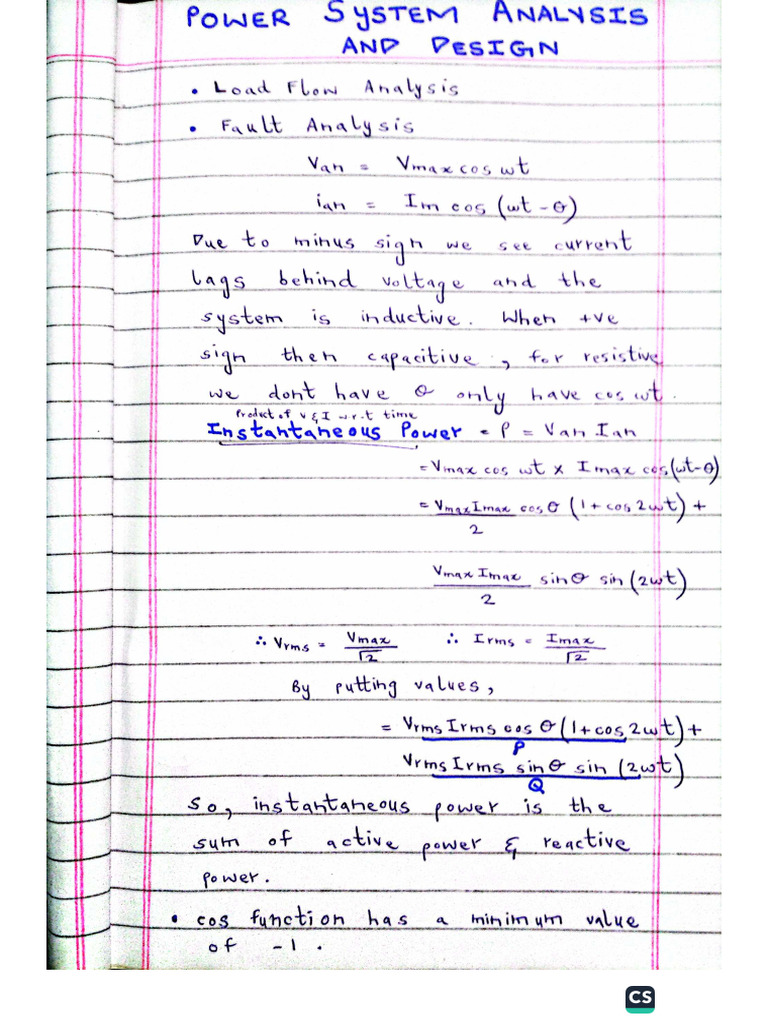 POWER SYSTEM ANALYSIS
AND DESIGN
• Load Flow Analysis
• Fault Analysis
Van = Vmax cos wt
ian = Im cos (wt - θ)
Due to minus sign we see current
lags behind voltage and the
system is inductive. When +ve
sign then capacitive, for resistive
we dont have θ only have cos wt.
Product of V & I w.r.t time
Instantaneous Power = P = Van Ian
= Vmax cos wt x Imax cos(wt-θ)
= VmaxImax/2 cosθ (1+cos2wt) +
Vmax Imax/2 sinθ sin(2wt)
∴ Vrms = Vmax/√2 ∴ Irms = Imax/√2
By putting values,
= Vrms Irms cos θ(1+cos2wt)+
P
Vrms Irms sinθ sin (2wt)
Q
So, instantaneous power is the
sum of active power & reactive
power.
• cos function has a minimum value
of -1.
CS